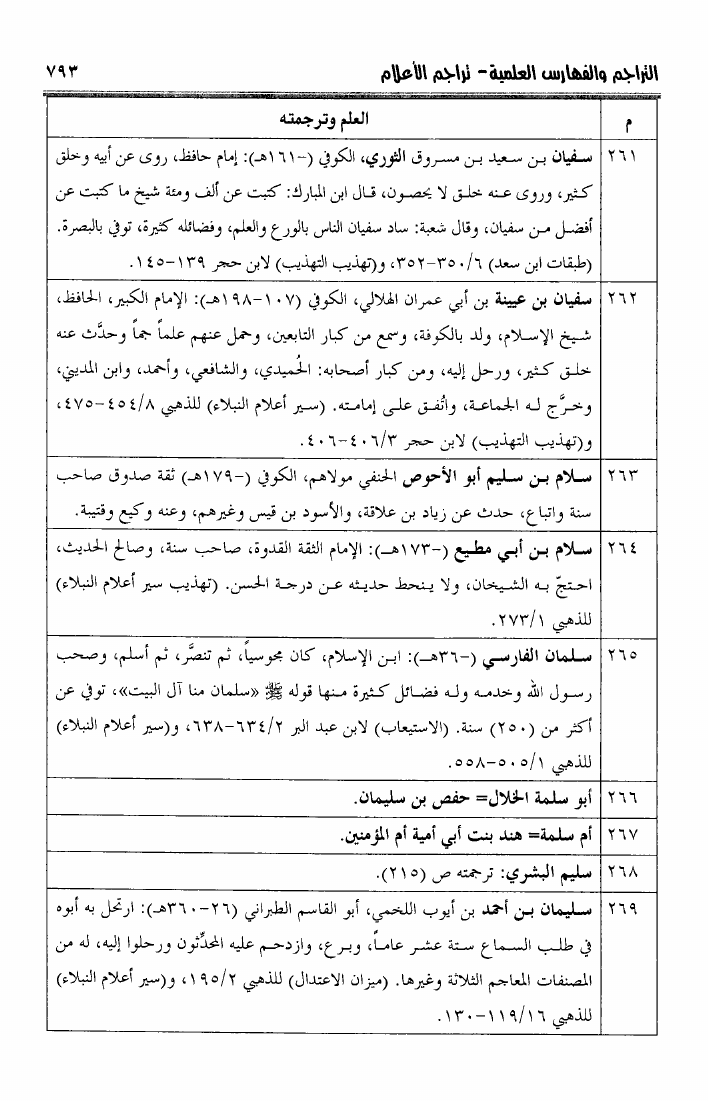 التراجم والفهارس العلمية - تراجم الأعلام ٧٩٣
م العلم وترجمته
٢٦١ سفيان بن سعيد بن مسروق الثوري، الكوفي (-١٦١هـ): إمام حافظ، روى عن أبيه وخلق
كثير، وروى عنه خلق لا يحصون، قال ابن المبارك: كتبت عن ألف ومئة شيخ ما كتبت عن
أفضل من سفيان، وقال شعبة: ساد سفيان الناس بالورع والعلم، وفضائله كثيرة، توفي بالبصرة.
(طبقات ابن سعد) ٣٥٠/٦-٣٥٢، و(تهذيب التهذيب) لابن حجر ١٣٩-١٤٥.
٢٦٢ سفيان بن عيينة بن أبي عمران الهلالي، الكوفي (١٠٧-١٩٨هـ): الإمام الكبير، الحافظ،
شيخ الإسلام، ولد بالكوفة، وسمع من كبار التابعين، وحمل عنهم علماً جماً وحدَّث عنه
خلق كثير، ورحل إليه، ومن كبار أصحابه: الحُميدي، والشافعي، وأحمد، وابن المديني،
وخرَّج له الجماعة، واتُفق على إمامته. (سير أعلام النبلاء) للذهبي ٤٥٤/٨-٤٧٥،
و(تهذيب التهذيب) لابن حجر ٤٠٦/٣-٤٠٦.
٢٦٣ سلام بن سليم أبو الأحوص الحنفي مولاهم، الكوفي (-١٧٩هـ) ثقة صدوق صاحب
سنة واتباع، حدث عن زياد بن علاقة، والأسود بن قيس وغيرهم، وعنه وكيع وقتيبة.
٢٦٤ سلام بن أبي مطيع (-١٧٣هـ): الإمام الثقة القدوة، صاحب سنة، وصالح الحديث،
احتجّ به الشيخان، ولا ينحط حديثه عن درجة الحسن. (تهذيب سير أعلام النبلاء)
للذهبي ٢٧٣/١.
٢٦٥ سلمان الفارسي (-٣٦هـ): ابن الإسلام، كان مجوسياً، ثم تنصَّر، ثم أسلم، وصحب
رسول الله وخدمه وله فضائل كثيرة منها قوله ﷺ «سلمان منا آل البيت»، توفي عن
أكثر من (٢٥٠) سنة. (الاستيعاب) لابن عبد البر ٦٣٤/٢-٦٣٨، و(سير أعلام النبلاء)
للذهبي ٥٠٥/١-٥٥٨.
٢٦٦ أبو سلمة الخلال= حفص بن سليمان.
٢٦٧ أم سلمة= هند بنت أبي أمية أم المؤمنين.
٢٦٨ سليم البشري: ترجمته ص (٢١٥).
٢٦٩ سليمان بن أحمد بن أيوب اللخمي، أبو القاسم الطبراني (٢٦-٣٦٠هـ): ارتحل به أبوه
في طلب السماع ستة عشر عاماً، وبرع، وازدحم عليه المحدِّثون ورحلوا إليه، له من
المصنفات المعاجم الثلاثة وغيرها. (ميزان الاعتدال) للذهبي ١٩٥/٢، و(سير أعلام النبلاء)
للذهبي ١١٩/١٦-١٣٠.